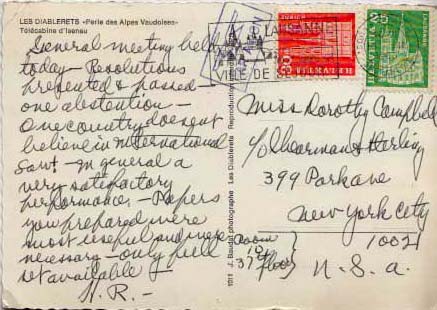 LES DIABLERETS «Perle des Alpes Vaudoises»
Télécabine d'Isenau
General meeting held
today - Resolutions
presented & passed -
one abstention -
One country does not
believe in International
Sov't - In general a
very satisfactory
performance - Papers
you prepared were
most useful and were
necessary - only full
set available -
H.R. -
1011 J. Baudat photographe Les Diablerets Reproduction
LAUSANNE
VILLE DE
30 HELVETIA
25
HELVETIA
Miss Dorothy Campbell
c/o Shearman & Sterling
399 Park Ave
New York City
10021
Room
37th floor
U.S.A.